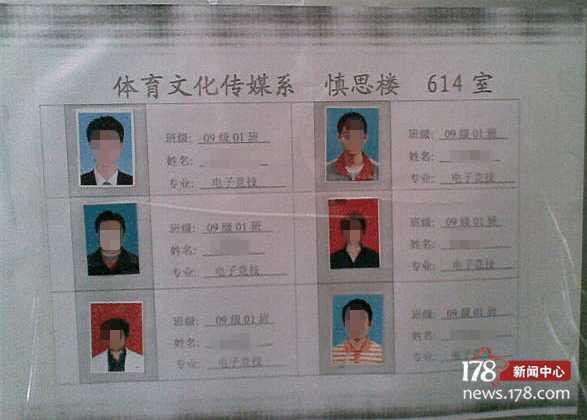 体育文化传媒系 慎思楼 614 室
班级: 09 级 01 班
姓名:
专业: 电子竞技
班级: 09 级 01 班
姓名:
专业: 电子竞技
班级: 09 级 01 班
姓名:
专业: 电子竞技
班级: 09 级 01 班
姓名:
专业: 电子竞技
班级: 09 级 01 班
姓名:
专业: 电子竞技
班级: 09 级 01 班
姓名:
专业: 电子竞技
178 新闻中心
news.178.com